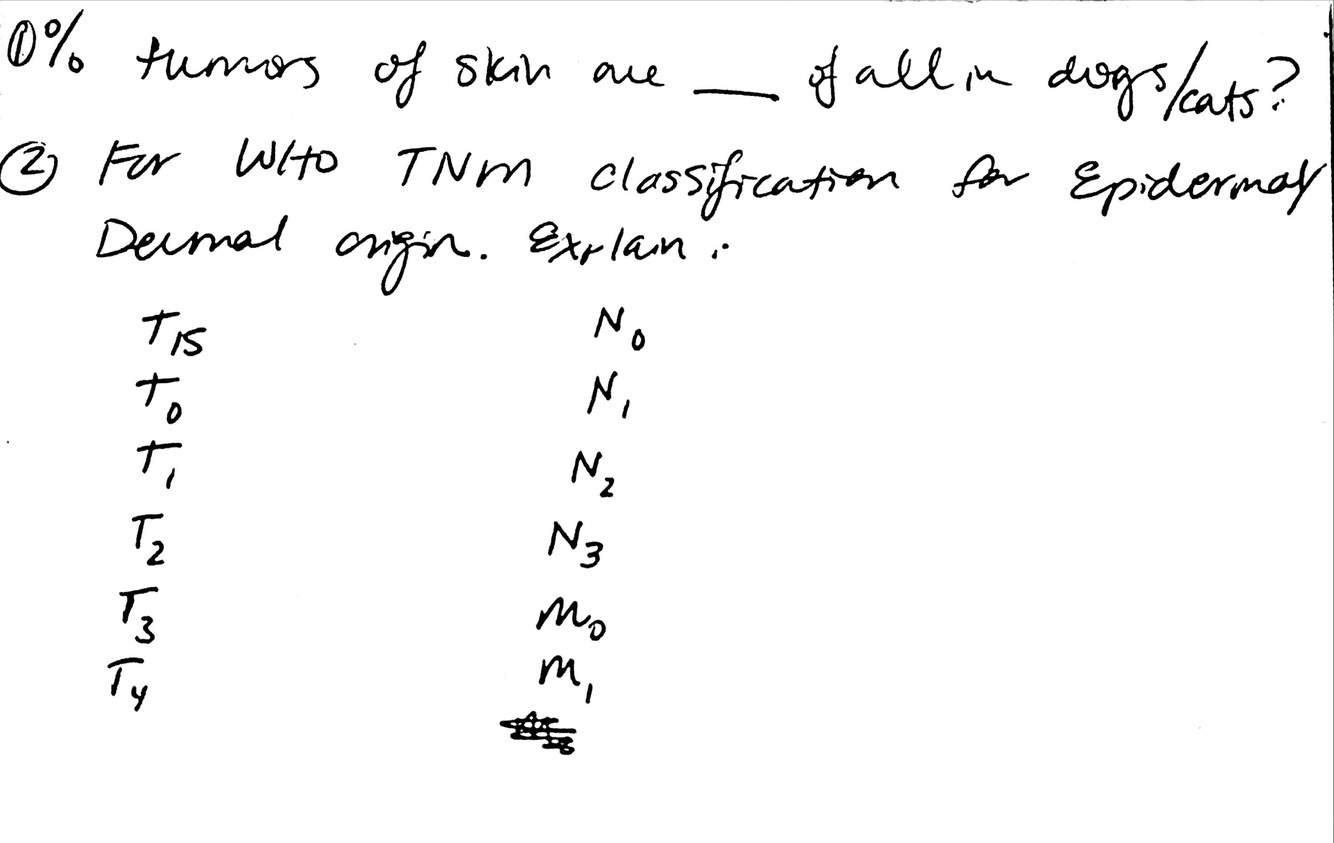 ①% tumors of skin are ___ of all in dogs/cats?
② For WHO TNM classification for Epidermal/
Dermal origin. Explain:
Tis N0
T0 N1
T1 N2
T2 N3
T3 M0
T4 M1